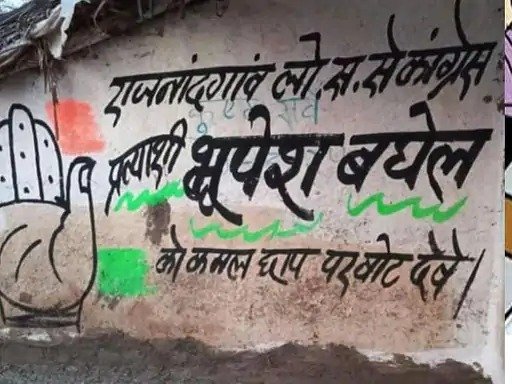 राजनांदगांव लो.स.से कांग्रेस
प्रत्याशी भूपेश बघेल
को कमल छाप पर वोट देवें।